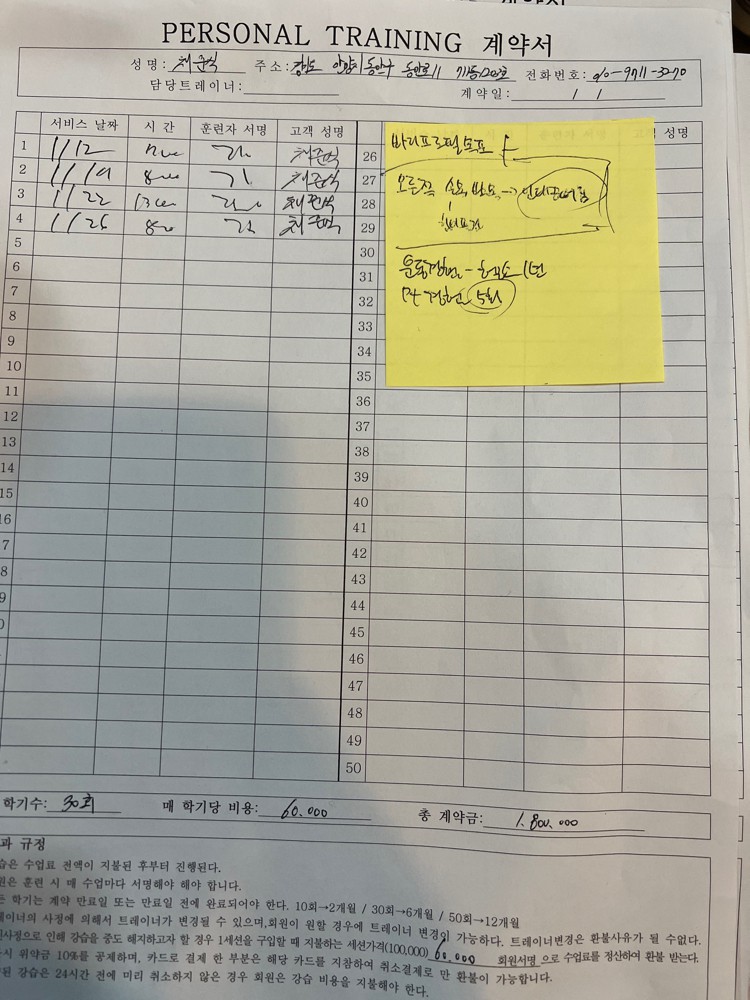 PERSONAL TRAINING 계약서
성 명: 채준식 주소: 동안로11 전화번호: 010-9711-3270
담당트레이너: 계약일: / /
서비스 날짜 시 간 훈련자 서명 고객 성명 고객 성명
1 1/12 채준식 26
2 1/19 채준식 27
3 1/22 채준식 28
4 1/26 채준식 29
5
6 31
7 32
8 33
9 34
10 35
11 36
12 37
13 38
14 39
15 40
16 41
7 42
8 43
9 44
45
46
47
48
49
50
바디프로필 목표
오른쪽
운동경험 - 헬스 1년
PT 경험 5회
학기수: 30회 매 학기당 비용: 60.000 총 계약금: 1.800.000
과 규정
습은 수업료 전액이 지불된 후부터 진행된다.
원은 훈련 시 매 수업마다 서명해야 해야 합니다.
든 학기는 계약 만료일 또는 만료일 전에 완료되어야 한다. 10회→2개월 / 30회→6개월 / 50회→12개월
레이너의 사정에 의해서 트레이너가 변경될 수 있으며,회원이 원할 경우에 트레이너 변경이 가능하다. 트레이너변경은 환불사유가 될 수없다.
인사정으로 인해 강습을 중도 해지하고자 할 경우 1세션을 구입할 때 지불하는 세션가격(100,000) 60.000 회원서명 으로 수업료를 정산하여 환불 받는다.
시 위약금 10%를 공제하며, 카드로 결제 한 부분은 해당 카드를 지참하여 취소결제로 만 환불이 가능합니다.
된 강습은 24시간 전에 미리 취소하지 않은 경우 회원은 강습 비용을 지불해야 한다.